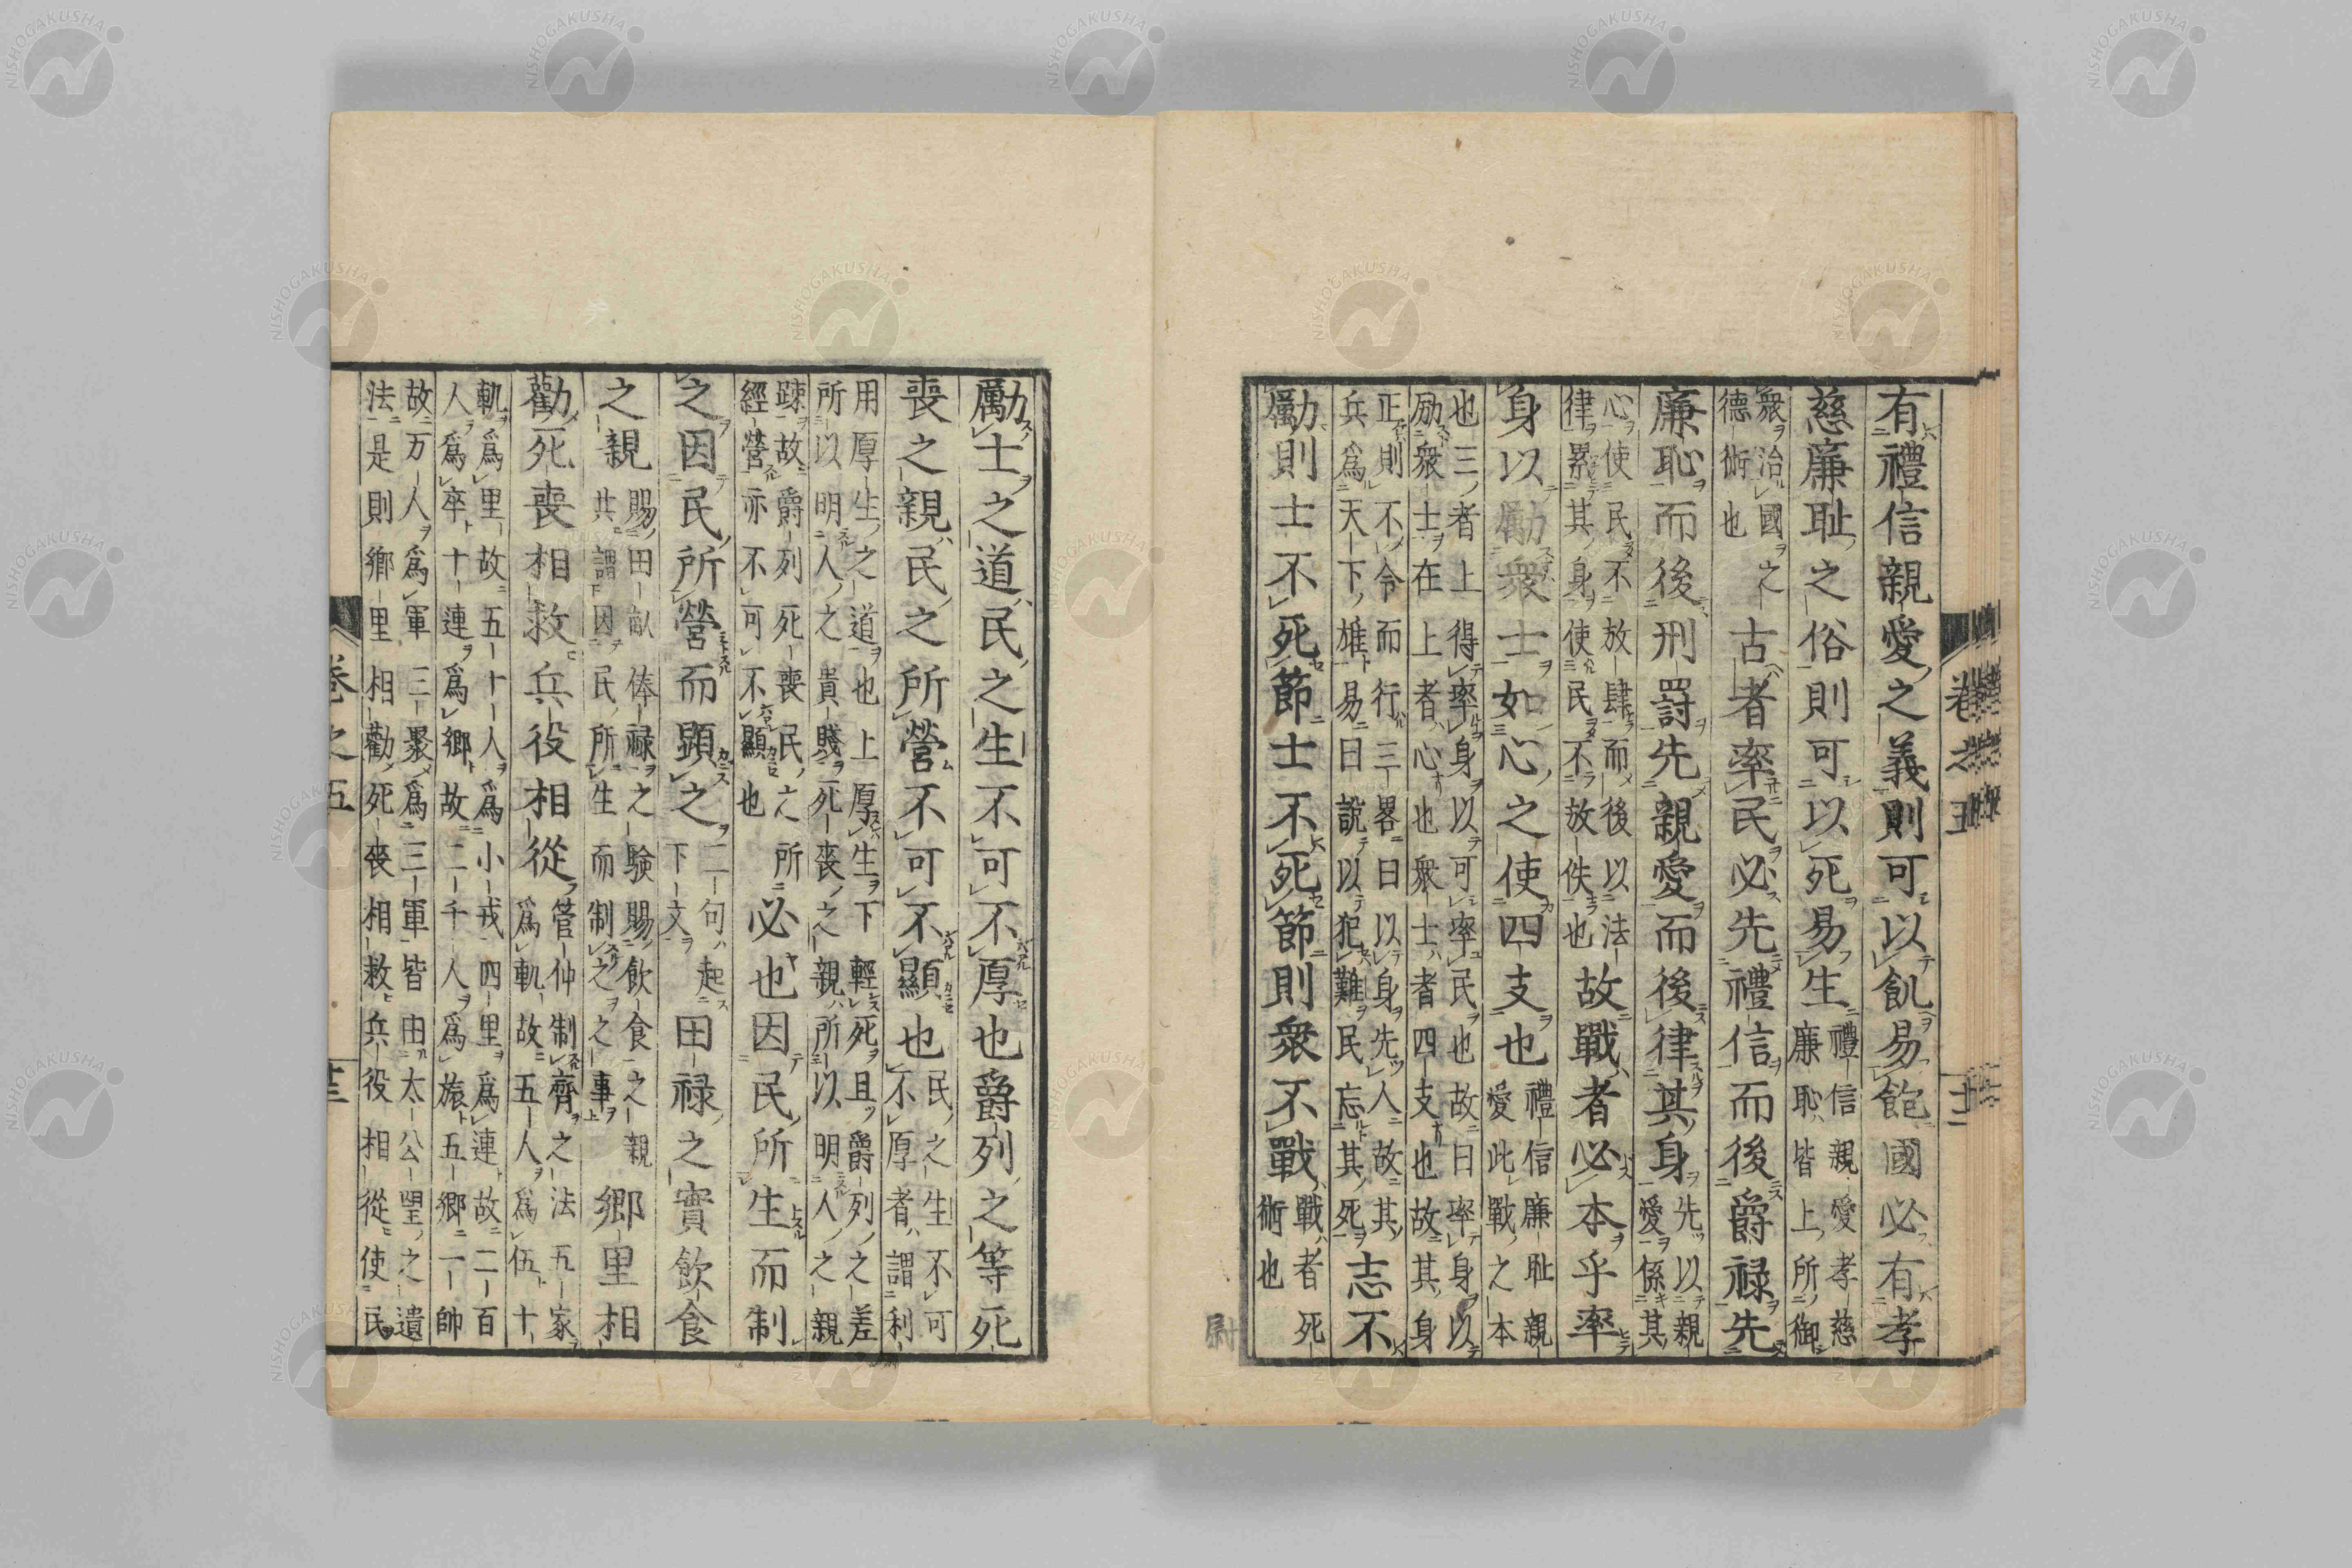 卷之五 十二
有禮信親愛之義則可以飢易飽國必有孝
慈廉恥之俗則可以死易生 禮信親愛孝慈
廉恥皆上所御
衆治國之
德術也 古者率民必先禮信而後爵禄先
廉恥而後刑罰先親愛而後律其身 先以親
愛係其
心使民不放肆而後以法
律累其身使民不放佚也 故戰者必本乎率
身以勵衆士如心之使四支也 禮信廉恥親
愛此戰之本
也三者上得率身以可率民也故曰率身以
励衆士在上者心也衆士者四支也故其身
正則不令而行三畧曰以身先人故其
兵爲天下雄易曰說以犯難民忘其死 志不
勵則士不死節士不死節則衆不戰 戰者死
術也
勵士之道民之生不可不厚也爵列之等死
喪之親民之所營不可不顯也 民之生不可
不厚者謂利
用厚生之道也上厚生下輕死且爵列之差
所以明人之貴賤死喪之親所以明人之親
踈故爵列死喪民之所
經營亦不可不顯也 必也因民所生而制
之因民所營而顕之 二句起
下文 田禄之實飲食
之親 賜田畝俸禄之験賜飲食之親
共謂因民所生而制之之事 鄉里相
勸死喪相救兵役相從 管仲制齊之法五家
爲軌故五人爲伍十
軌爲里故五十人爲小戎四里爲連故二百
人爲卒十連爲鄉故二千人爲旅五鄉一帥
故万人爲軍三聚爲三軍皆由太公望之遺
法是則鄉里相勸死喪相救兵役相從使民
卷之五 十三
NISHOGAKUSHA